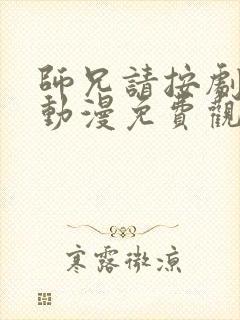 師兄請按劇
動漫免費觀
寒露微涼